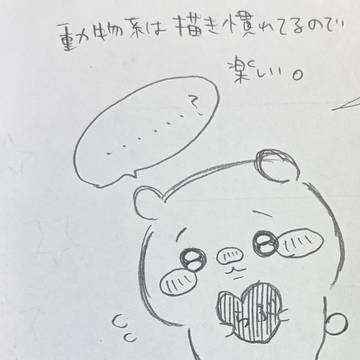 動物系は描き慣れてるので
楽しい。
........?